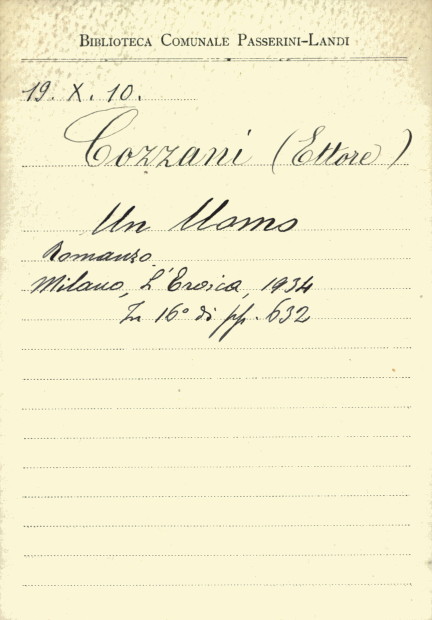 BIBLIOTECA COMUNALE PASSERINI-LANDI
19. X. 10.
Cozzani (Ettore)
Un Uomo
Romanzo
Milano, L'Eroica, 1934
In 16° di pp. 632